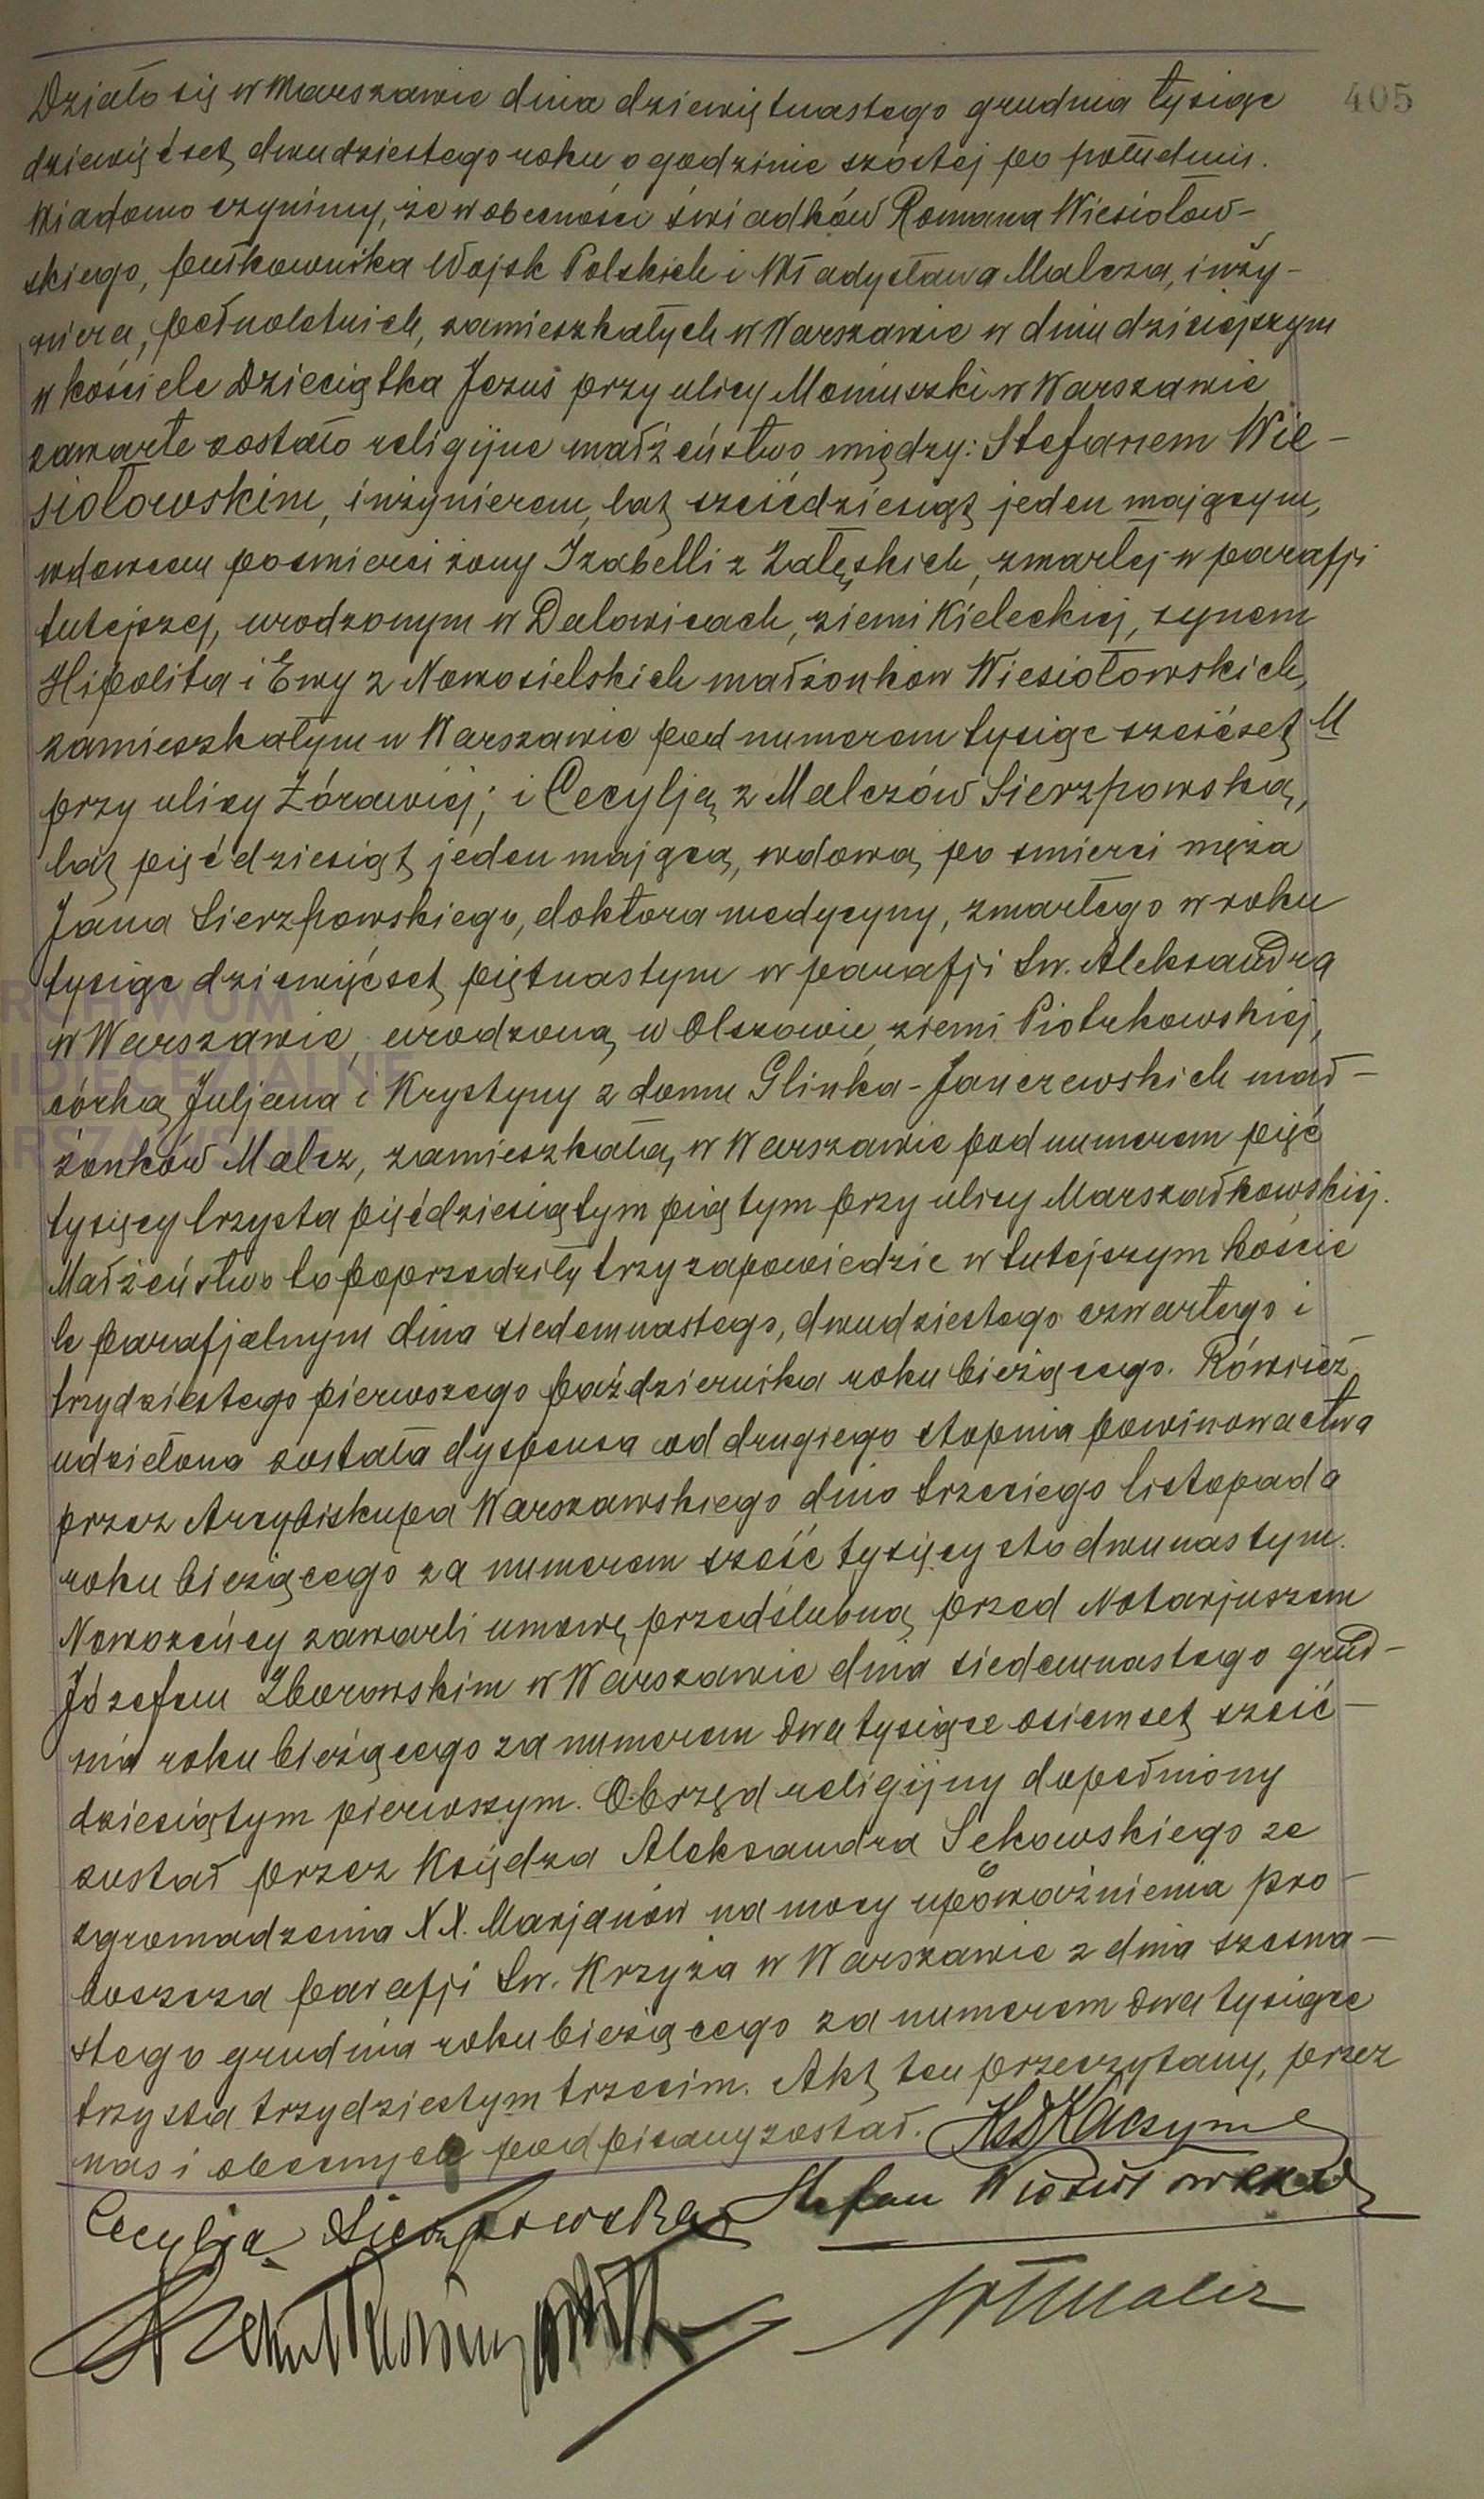 405
Działo się w Warszawie dnia dziewiętnastego grudnia tysiąc
dziewięćset dwudziestego roku o godzinie szóstej po południu.
Wiadomo czynimy, że w obecności świadków Romana Wiesiołow-
skiego, pułkownika Wojsk Polskich i Władysława Malcza, inży-
niera, pełnoletnich, zamieszkałych w Warszawie w dniu dzisiejszym
w kościele Dzieciątka Jezus przy ulicy Moniuszki w Warszawie
zawarte zostało religijne małżeństwo między: Stefanem Wie-
siołowskim, inżynierem, lat sześćdziesiąt jeden mającym,
wdowcem po śmierci żony Izabelli z Załęskich, zmarłej w parafji
tutejszej, urodzonym w Dalowicach, ziemi Kieleckiej, synem
Hipolita i Ewy z Nowosielskich małżonków Wiesiołowskich,
zamieszkałym w Warszawie pod numerem tysiąc sześćset M
przy ulicy Żórawiej; i Cecylją z Malczów Sierzpowską,
lat pięćdziesiąt jeden mającą, wdową po śmierci męża
Jana Sierzpowskiego, doktora medycyny, zmarłego w roku
tysiąc dziewięćset piętnastym w parafji Św. Aleksandra
w Warszawie, urodzoną w Olszowie, ziemi Piotrkowskiej,
córką Juljana i Krystyny z domu Glinka-Janczewskich mał-
żonków Malcz, zamieszkałą w Warszawie pod numerem pięć
tysięcy trzysta pięćdziesiątym piątym przy ulicy Marszałkowskiej.
Małżeństwo to poprzedziły trzy zapowiedzie w tutejszym koście
le parafjalnym dnia siedemnastego, dwudziestego czwartego i
trzydziestego pierwszego października roku bieżącego. Również
udzielona została dyspensa od drugiego stopnia powinowactwa
przez Arcybiskupa Warszawskiego dnia trzeciego listopada
roku bieżącego za numerem sześć tysięcy sto dwunastym.
Nowożeńcy zawarli umowę przedślubną przed Notarjuszem
Józefem Zborowskim w Warszawie dnia siedemnastego grud-
nia roku bieżącego za numerem dwa tysiące osiemset sześć-
dziesiątym pierwszym. Obrzęd religijny dopełniony
został przez Księdza Aleksandra Sekowskiego ze
zgromadzenia XX. Marjanów na mocy upoważnienia pro-
boszcza parafji Św. Krzyża w Warszawie z dnia szesna-
stego grudnia roku bieżącego za numerem dwa tysiące
trzysta trzydziestym trzecim. Akt ten przeczytany, przez
nas i obecnych podpisany został.
Cecylja Sierzpowska Stefan Wiesiołowski
Wł Malcz
ARCHIWUM
ARCHIDIECEZJALNE
WARSZAWSKIE